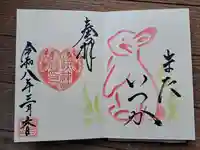 また
いつか
奉拝
令和八年三月吉日